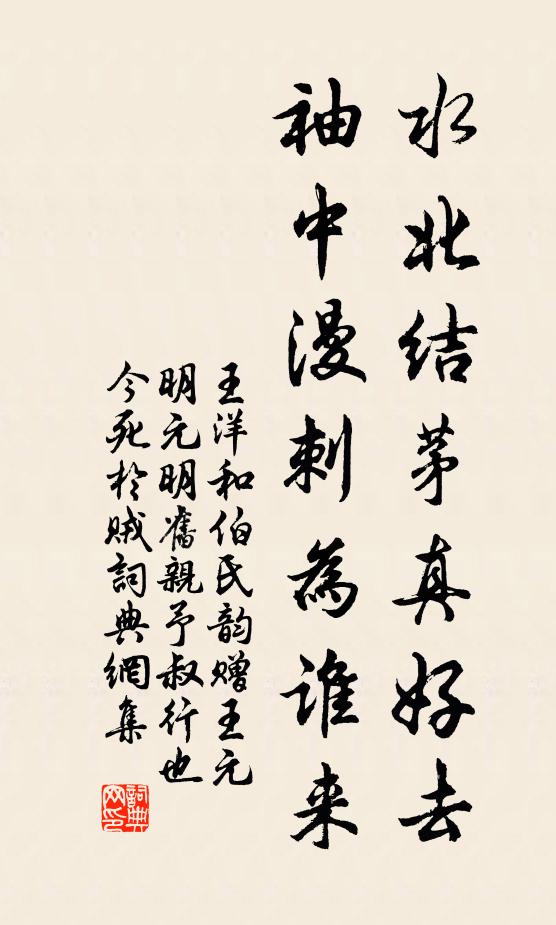 水北结茅真好去
袖中漫刺為谁来
王洋和伯氏韵赠王元
明元明奮親予叔行也
今死於贼詞典網集
詞典網印